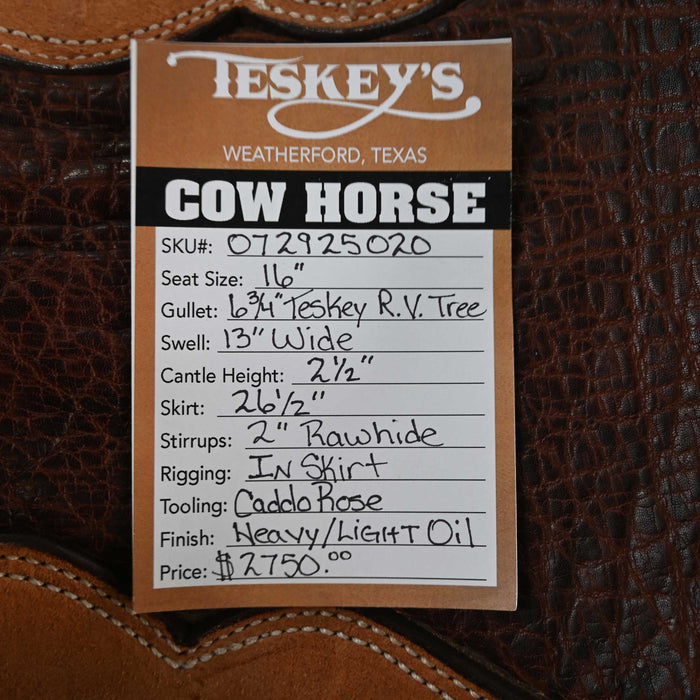 TESKEY'S
WEATHERFORD, TEXAS
COW HORSE
SKU#: 072925020
Seat Size: 16"
Gullet: 6 3/4" Teskey R.V. Tree
Swell: 13" Wide
Cantle Height: 2 1/2"
Skirt: 26 1/2"
Stirrups: 2" Rawhide
Rigging: IN Skirt
Tooling: Caddo Rose
Finish: Heavy/LIGHT Oil
Price: $2750.00